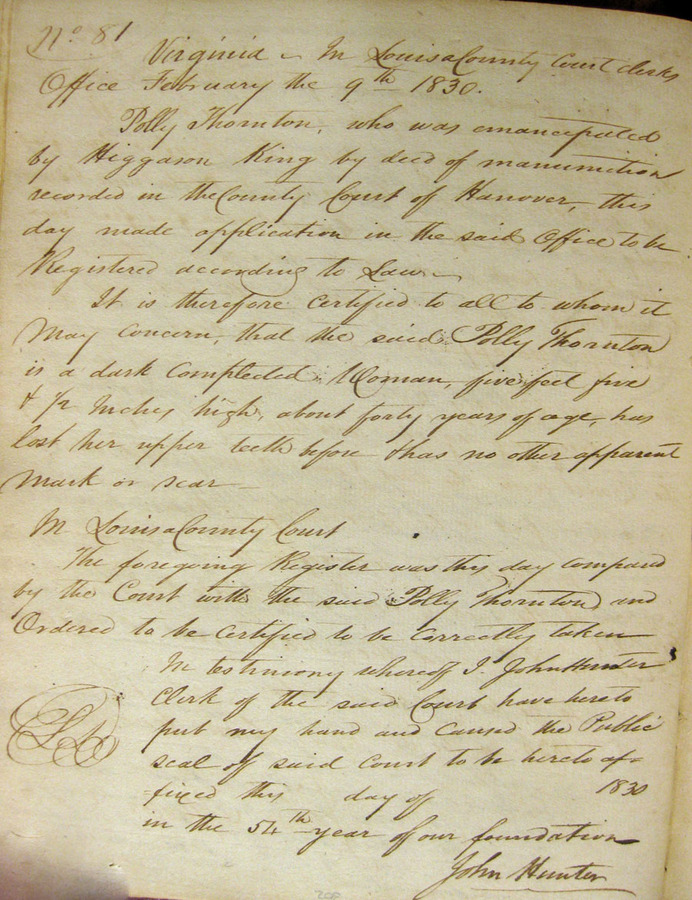 No 81
Virginia - In Louisa County Court clerks
Office February the 9th 1830.
Polly Thornton, who was emancipated
by Higgason King by deed of manumition
recorded in the County Court of Hanover, this
day made application in the said Office to be
Registered according to Law -
It is therefore Certified to all to whom it
May Concern, that the said Polly Thornton
is a dark Complected Woman, five feet five
& 1/2 Inches high, about forty years of age, has
lost her upper teeth before & has no other apparent
mark or scar -
In Louisa County Court
The foregoing Register was this day compared
by the Court with the said Polly Thornton and
Ordered to be Certified to be Correctly taken
In testimony whereof I. John Hunter
Clerk of the said Court have hereto
put my hand and Caused the Public
seal of said Court to be hereto af=
fixed this day of 1830
in the 54th year of our foundation
John Hunter
LS
200